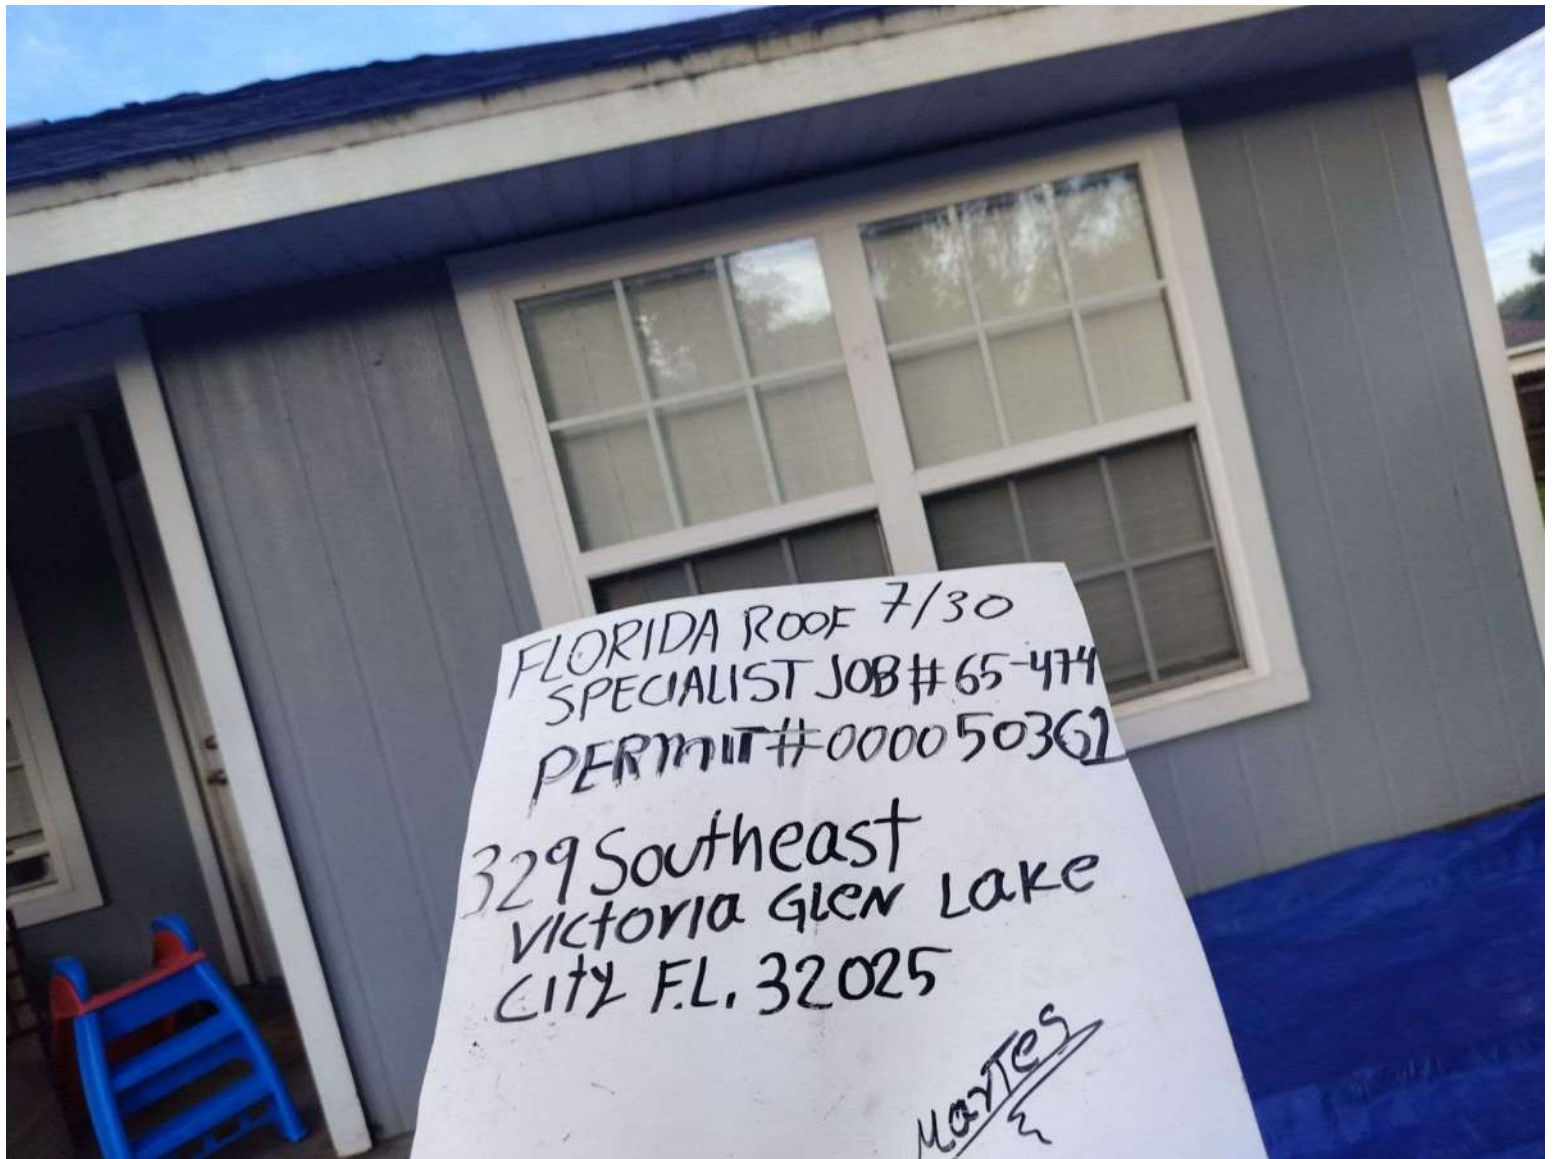 FLORIDA ROOF 7/30
SPECIALIST JOB # 65-474
PERMIT # 000050361
329 Southeast
Victoria Glen Lake
City F.L. 32025
Martes